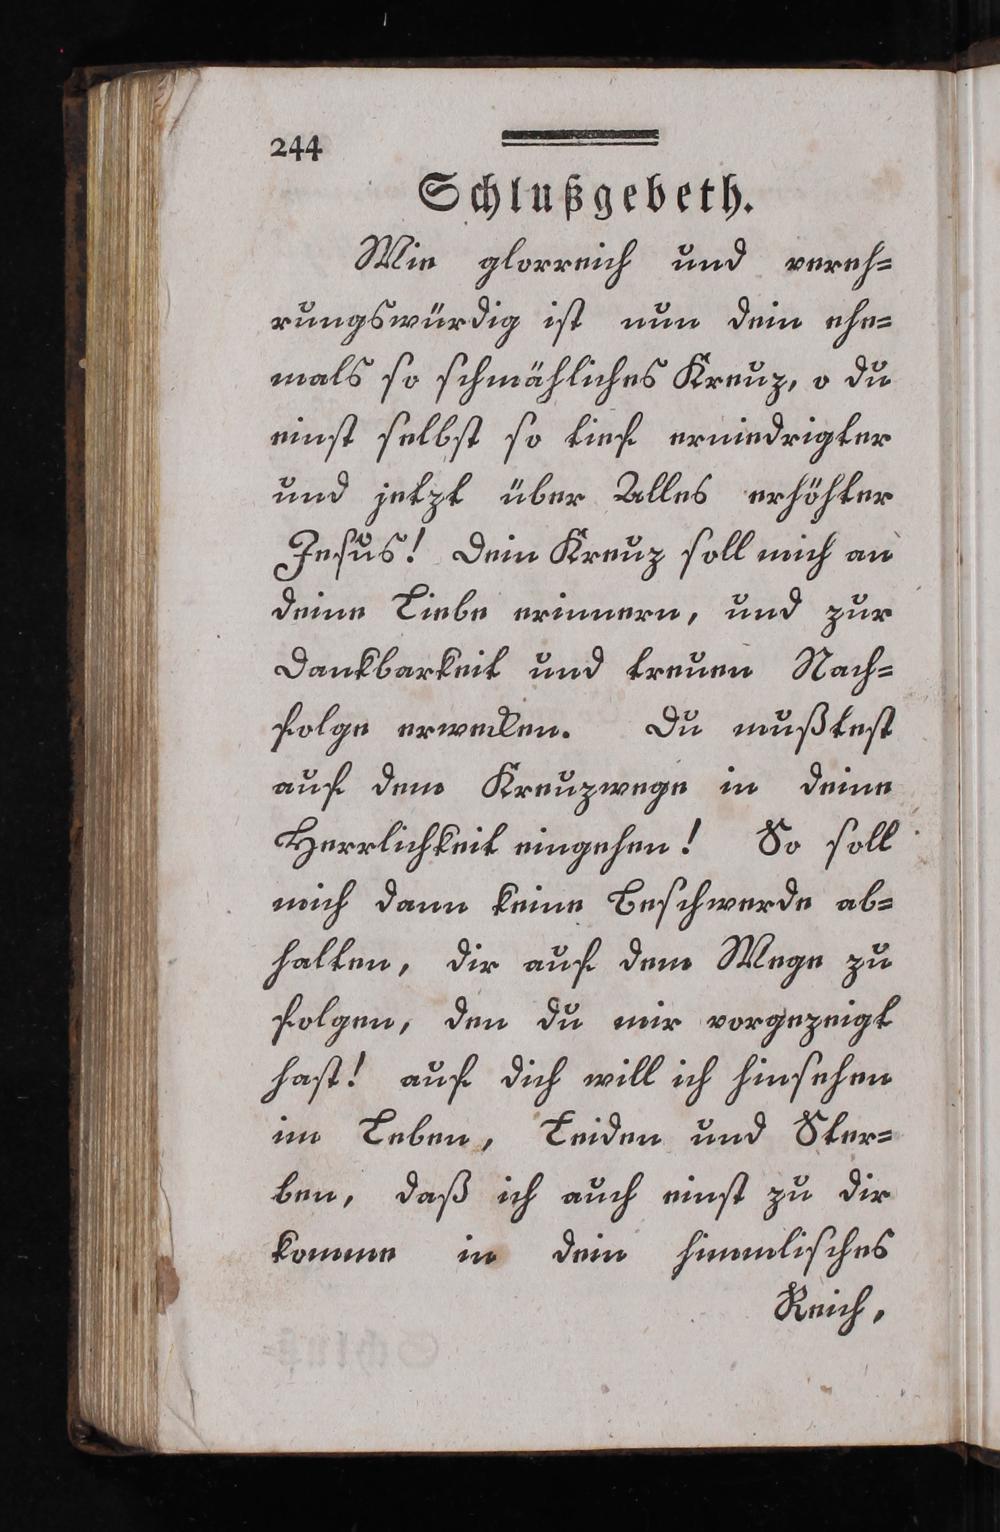 244
Schlußgebeth.
Wie glorreich und vereh=
rungswürdig ist nun dein ehe=
mals so schmähliches Kreuz, o du
einst selbst so tief erniedrigter
und jetzt über Alles erhöhter
Jesus! Dein Kreuz soll mich an
deine Liebe erinnern, und zur
Dankbarkeit und treuen Nach=
folge erwecken. Du mußtest
auf dem Kreuzwege in deine
Herrlichkeit eingehen! So soll
mich dann keine Beschwerde ab=
halten, dir auf dem Wege zu
folgen, den du mir vorgezeigt
hast! auf dich will ich hinsehen
im Leben, Leiden und Ster=
ben, daß ich auch einst zu dir
komme in dein himmlisches
Reich,